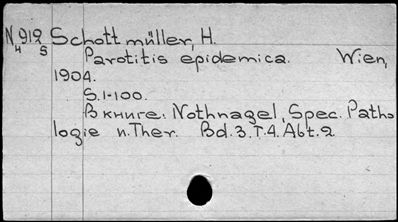 N 919 Schottmüller, H.
4 S
Parotitis epidemica. Wien,
1904.
S.1-100.
В книге: Nothnagel, Spec. Patho-
logie u.Ther. Bd.3.T.4.Abt.2